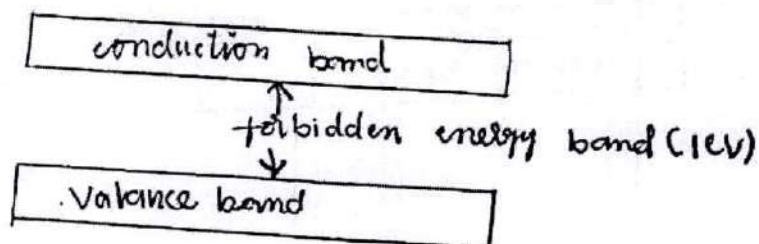 conduction band
forbidden energy band (1eV)
Valance band